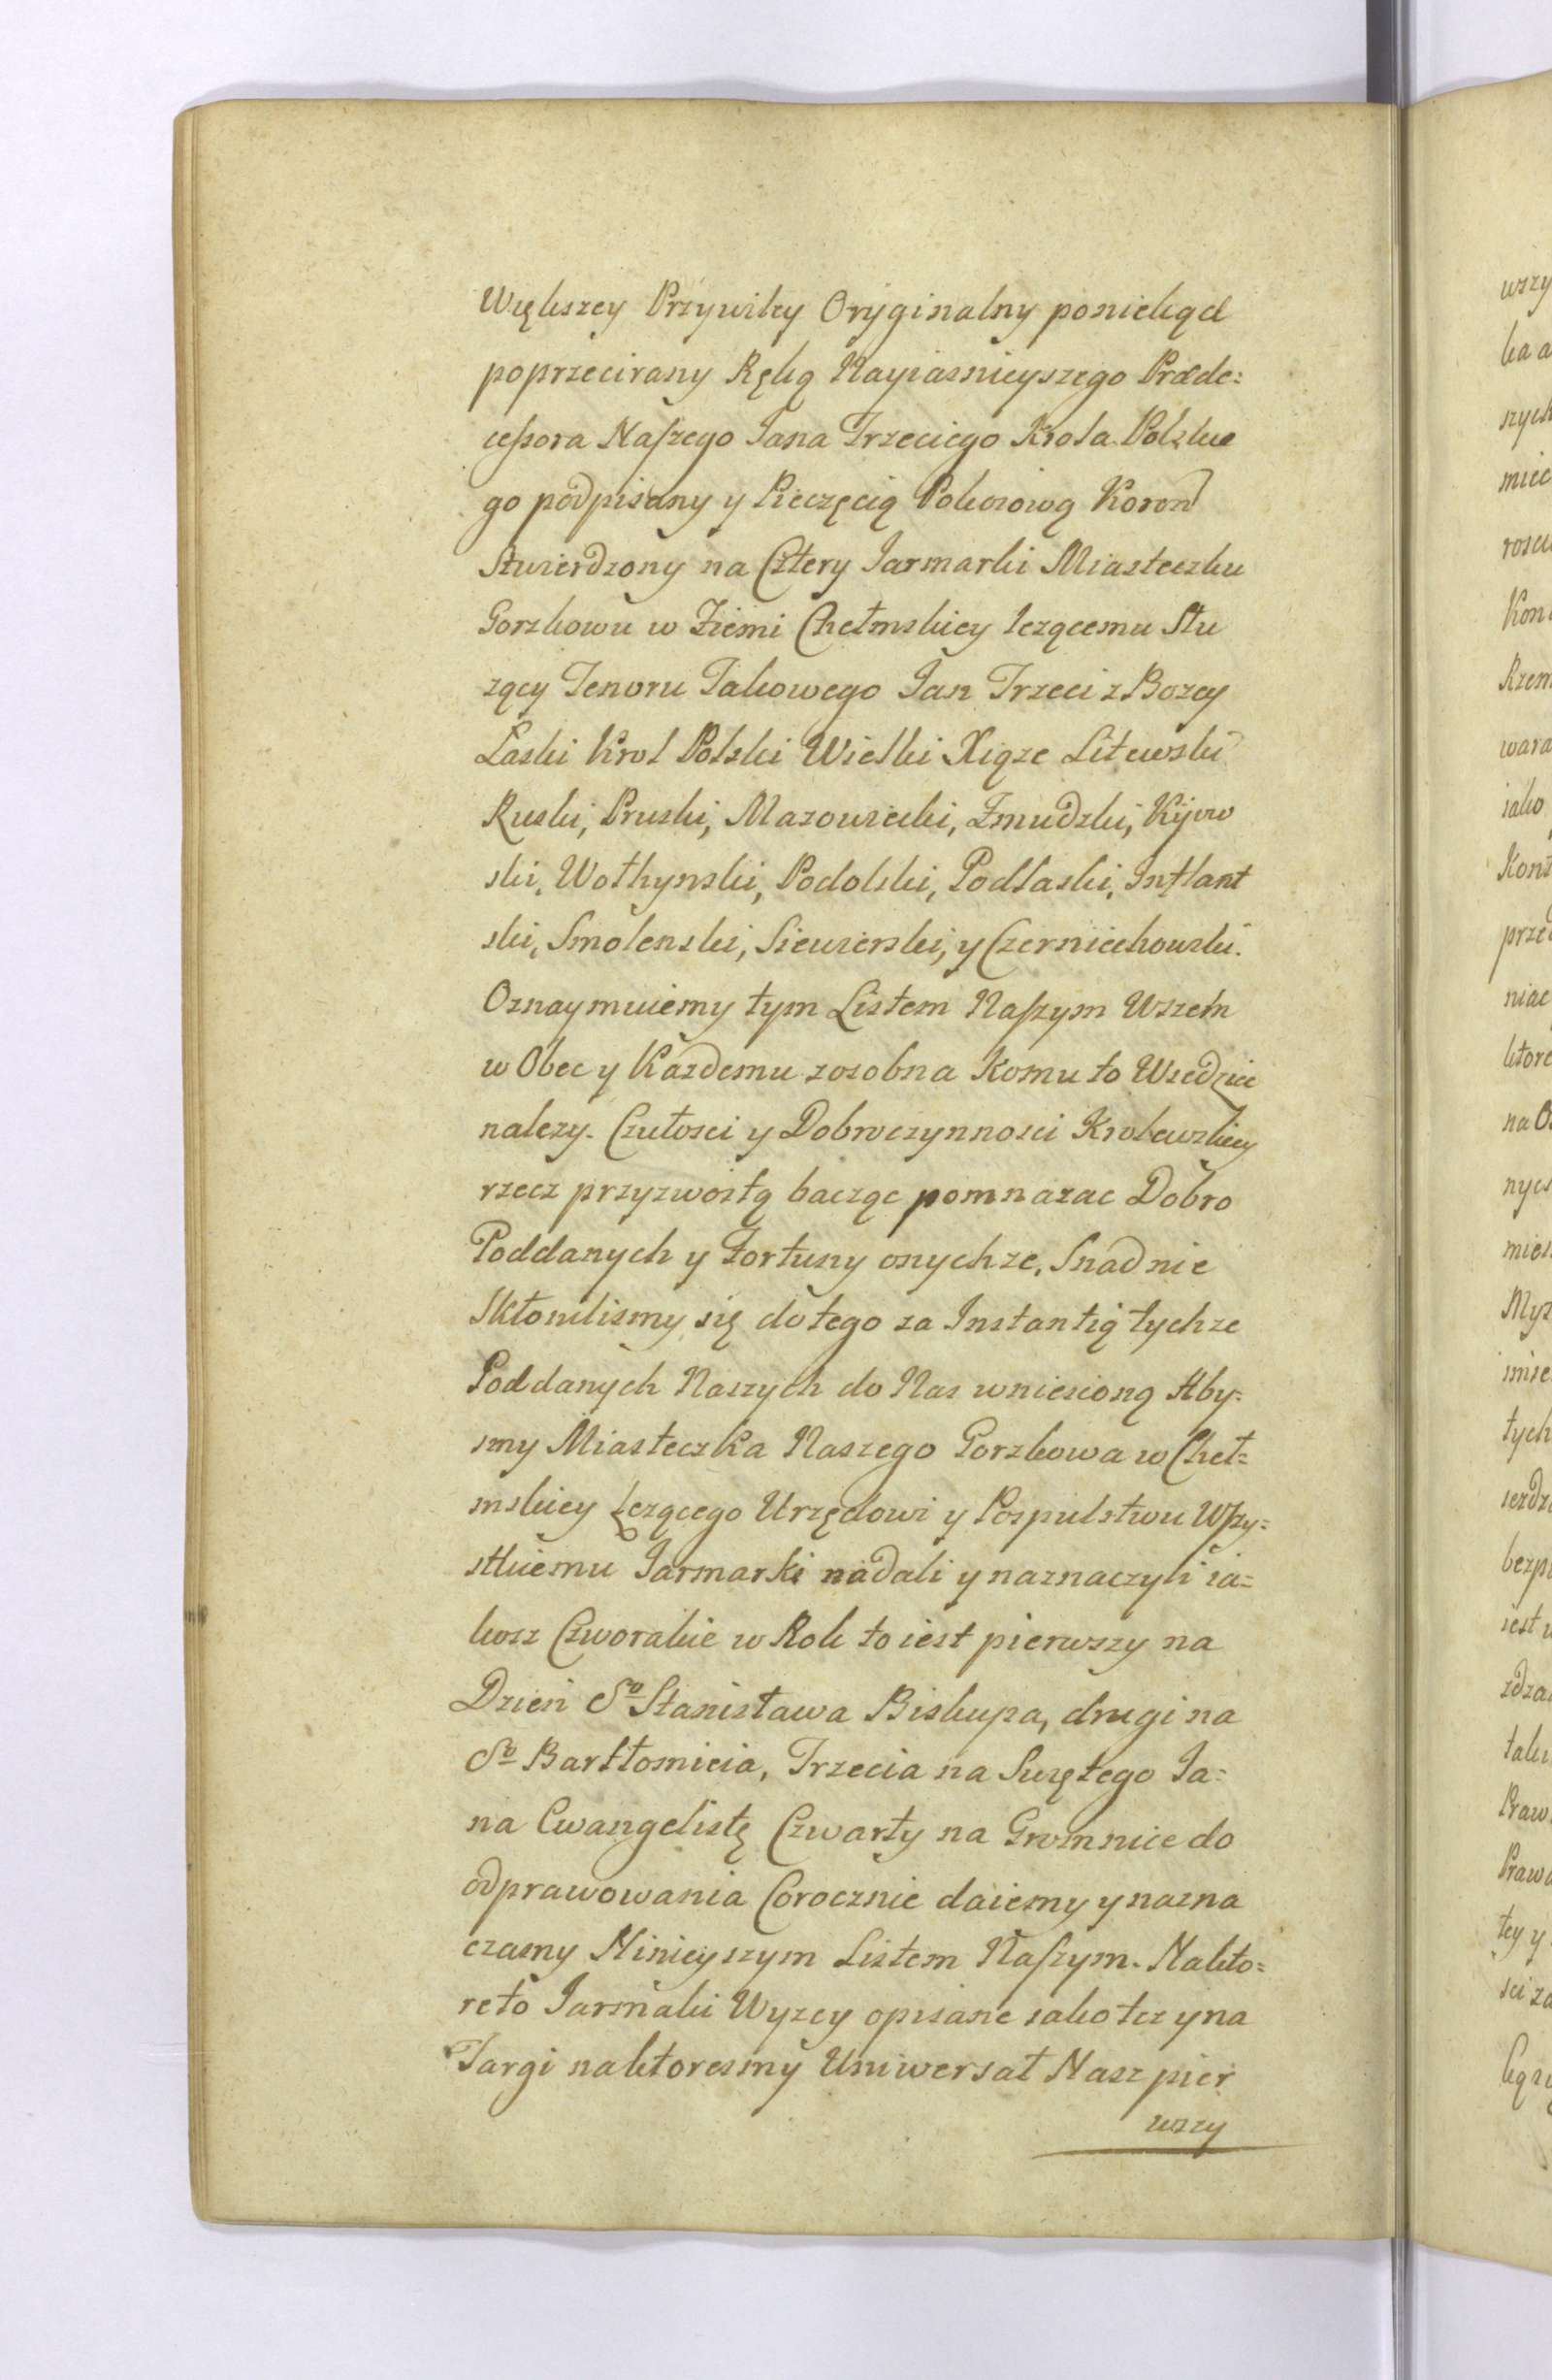 Większey Przywiley Oryginalny poniekąd
poprzecirany Ręką Nayiasnieyszego Præde=
cessora Naszego Jana Trzeciego Krola Polskie
go podpisany y Pieczęcią Pokoiową Koron
Stwierdzony na Cztery Jarmarki Miasteczku
Gorzkowu w Ziemi Chełmskiey lezącemu Słu
zący Tenoru Takowego Jan Trzeci z Bozey
Łaski Krol Polski Wielki Xiąze Litewski
Ruski, Pruski, Mazowiecki, Zmudzki, Kijow
ski, Wołhynski, Podolski, Podlaski, Inflant
ski, Smolenski, Siewierski, y Czerniechowski.
Oznaymuiemy tym Listem Naszym Wszem
w Obec y Kazdemu zosobna Komu to Wiedziec
nalezy. Czułosci y Dobroczynnosci Krolewskiey
rzecz przyzwoitą bacząc pomnazac Dobro
Poddanych y Fortuny onychze, Snadnie
Skłonilismy się do tego za Instantią tychze
Poddanych Naszych do Nas wniesioną Aby=
smy Miasteczka Naszego Gorzkowa w Cheł=
mskiey Lezącego Urzędowi y Pospulstwu Wszy=
stkiemu Jarmarki nadali y naznaczyli ia=
kosz Czworakie w Rok to iest pierwszy na
Dzien S<sup>o</sup> Stanisława Biskupa, drugi na
S<sup>o</sup> Bartłomieia, Trzecia na Swętego Ja=
na Ewangelistę Czwarty na Gromnice do
odprawowania Corocznie daiemy y nazna
czamy Ninieyszym Listem Naszym. Nakto=
reto Jarmaki Wyzey opisane iako tez y na
Targi naktoresmy Uniwersał Nasz pier
wszy